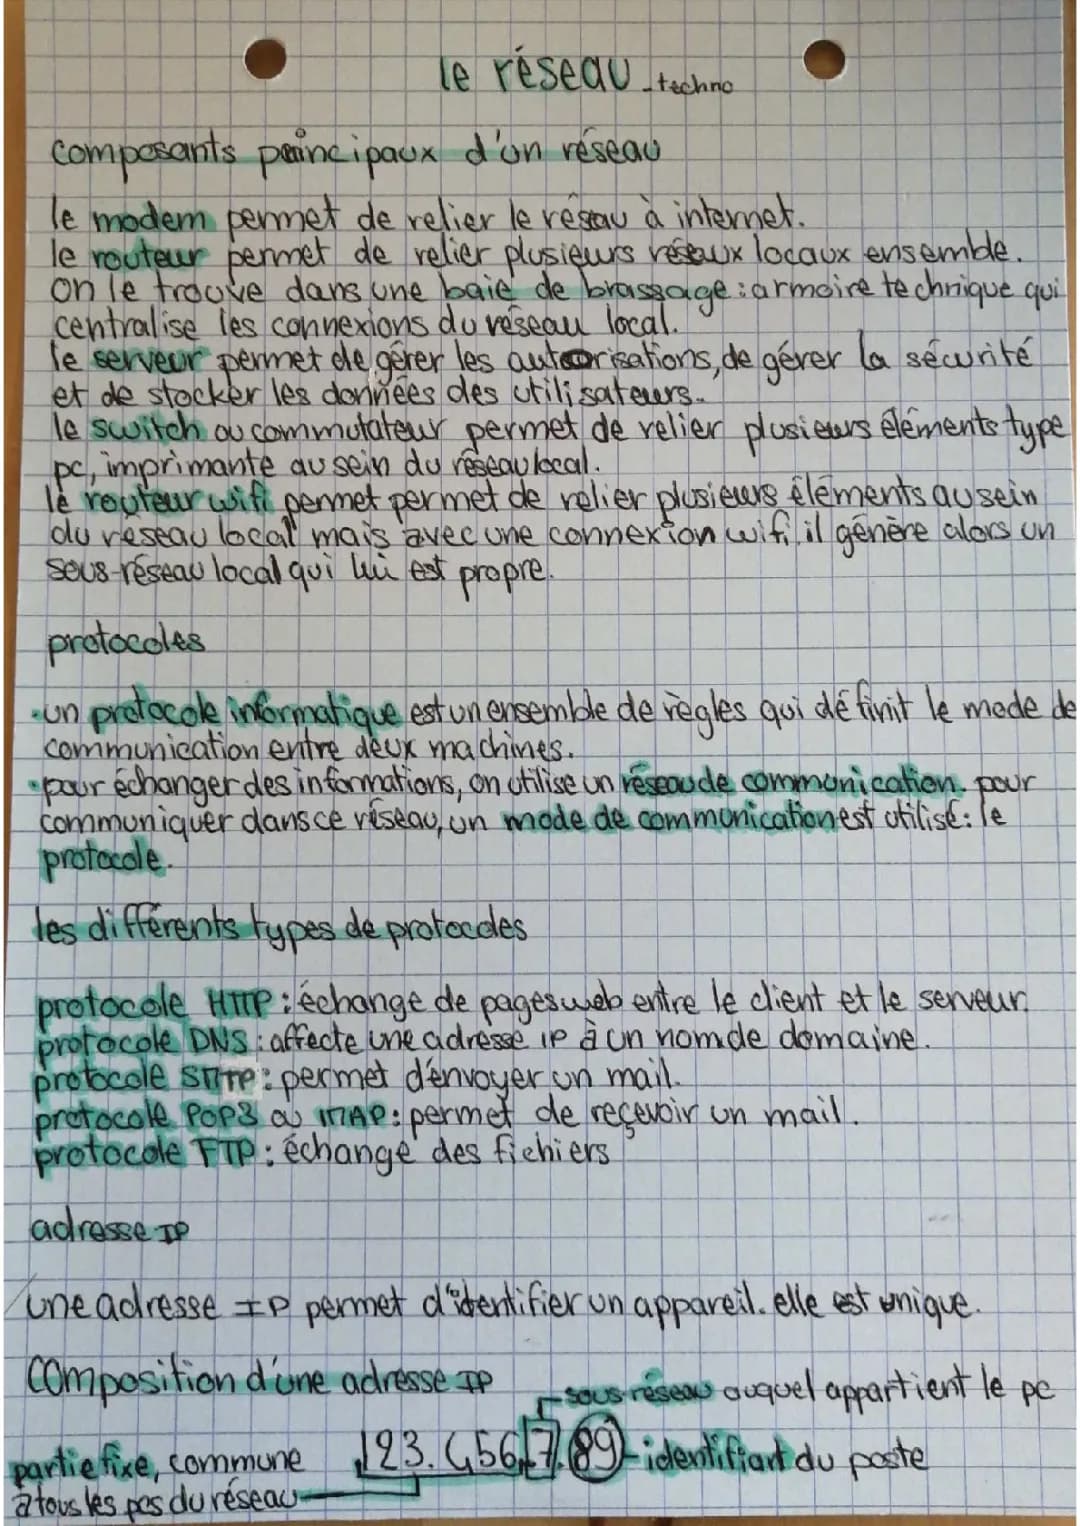 le réseau - techno
composants principaux d'un réseau
le modem permet de relier le résau à internet.
le routeur permet de relier plusieurs réseaux locaux ensemble.
on le trouve dans une baie de brassage : armoire technique qui
centralise les connexions du réseau local.
le serveur permet de gérer les autorisations, de gérer la sécurité
et de stocker les données des utilisateurs.
le switch ou commutateur permet de relier plusieurs éléments type
pc, imprimante au sein du réseau local.
le routeur wifi permet permet de relier plusieurs éléments au sein
du réseau local mais avec une connexion wifi. il génère alors un
sous-réseau local qui lui est propre.
protocoles
• un protocole informatique est un ensemble de règles qui définit le mode de
communication entre deux machines.
• pour échanger des informations, on utilise un réseau de communication. pour
communiquer dans ce réseau, un mode de communication est utilisé : le
protocole.
les différents types de protocoles
protocole HTTP : échange de pages web entre le client et le serveur.
protocole DNS : affecte une adresse IP à un nom de domaine.
protocole SMTP : permet d'envoyer un mail.
protocole POP3 ou IMAP : permet de reçevoir un mail.
protocole FTP : échange des fichiers
adresse IP
une adresse IP permet d'identifier un appareil. elle est unique.
composition d'une adresse IP
sous-réseau auquel appartient le pc
partie fixe, commune 123.456.7.89 - identifiant du poste
à tous les pcs du réseau